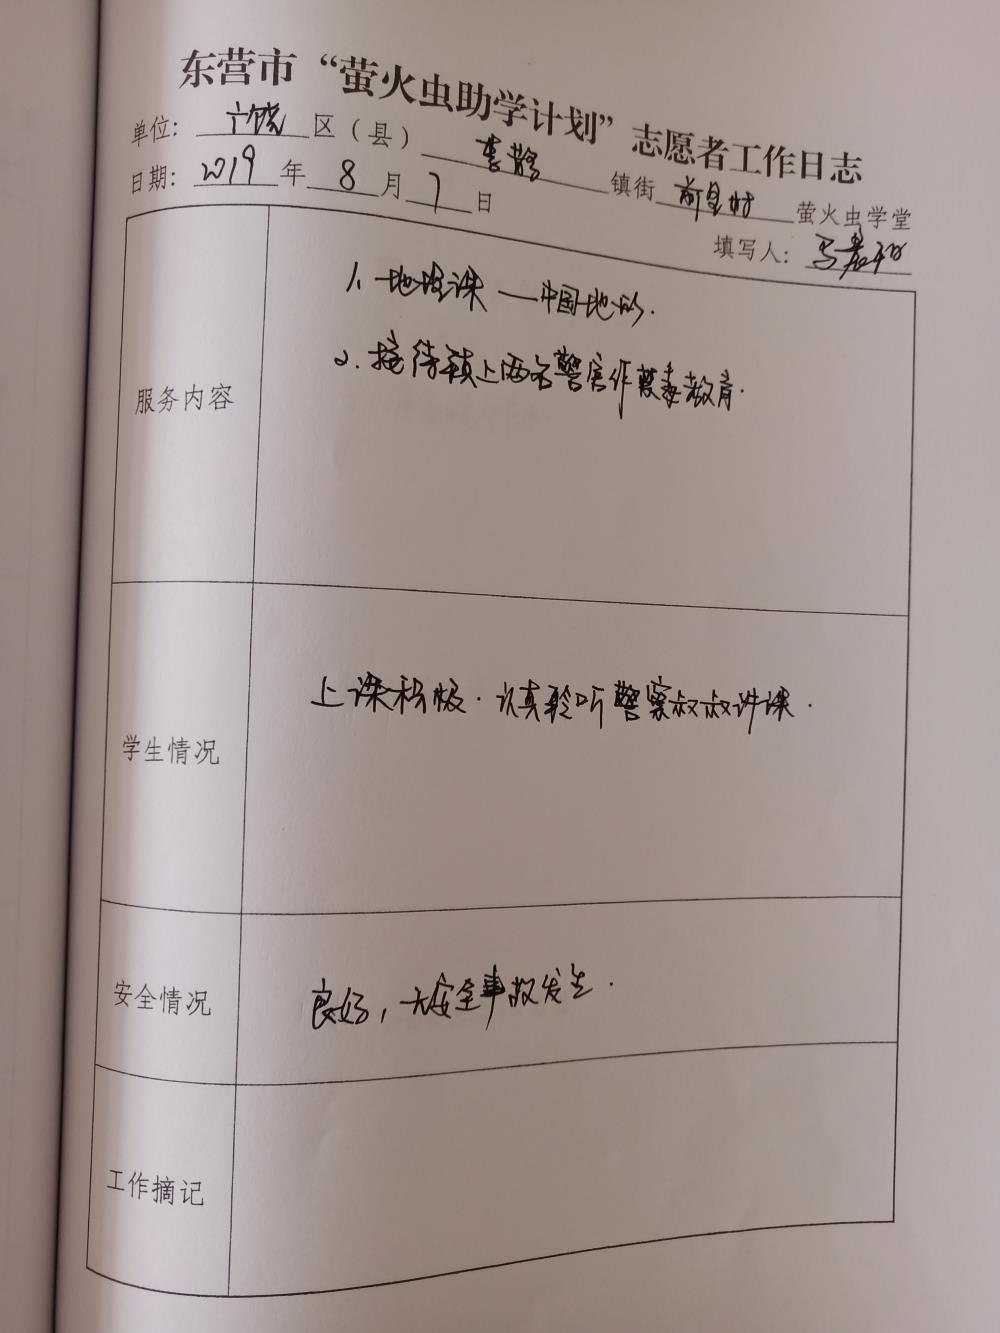 东营市“萤火虫助学计划”志愿者工作日志
单位：广饶区（县）李鹊镇街前呈村萤火虫学堂
日期：2019年8月7日
填写人：马嘉
服务内容
1、地理课——中国地形.
2、接待镇上两名警察作禁毒教育.
学生情况
上课积极.认真聆听警察叔叔讲课.
安全情况
良好，无安全事故发生.
工作摘记